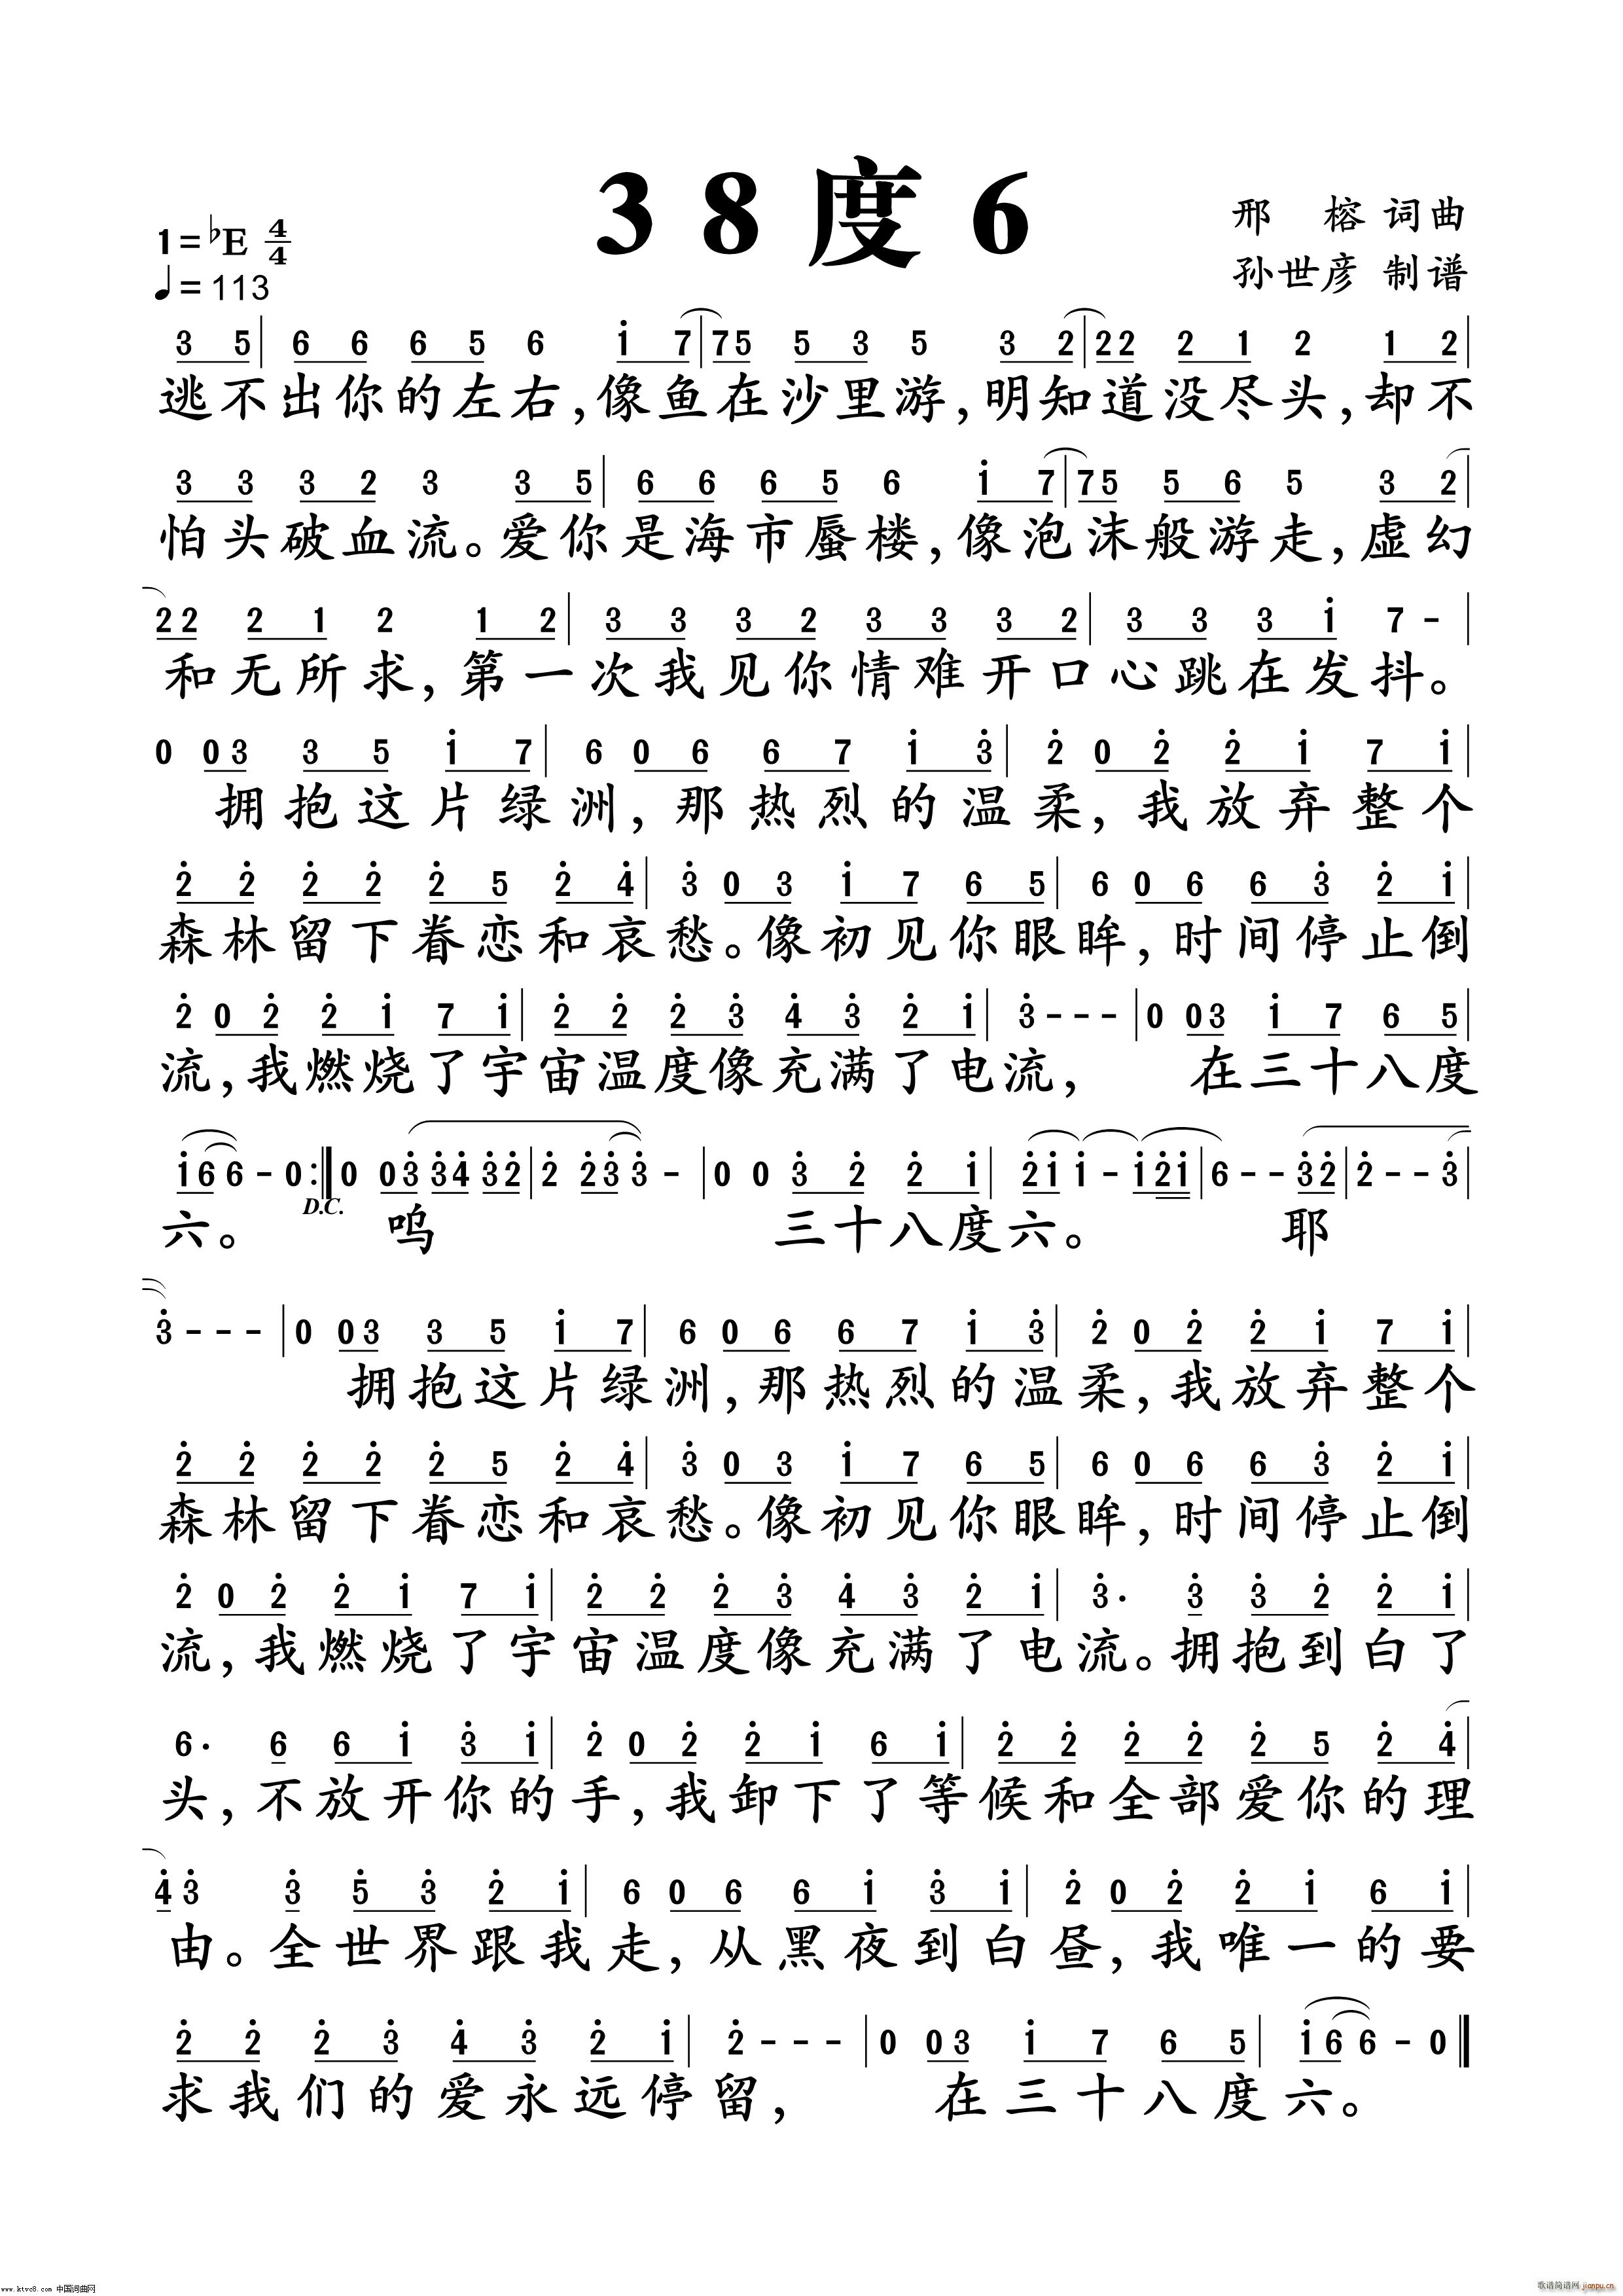 38度6
1=♭E 4/4
♩=113
邢 榕 词曲
孙世彦 制谱
3 5 | 6 6 6 5 6 i 7 | 7 5 5 3 5 3 2 | 2 2 2 1 2 1 2 |
逃不出你的左右,像鱼在沙里游,明知道没尽头,却不
3 3 3 2 3 3 5 | 6 6 6 5 6 i 7 | 7 5 5 6 5 3 2 |
怕头破血流。爱你是海市蜃楼,像泡沫般游走,虚幻
2 2 2 1 2 1 2 | 3 3 3 2 3 3 3 2 | 3 3 3 i 7 - |
和无所求,第一次我见你情难开口心跳在发抖。
0 0 3 3 5 i 7 | 6 0 6 6 7 i 3̇ | 2̇ 0 2̇ 2̇ i 7 i |
拥抱这片绿洲,那热烈的温柔,我放弃整个
2̇ 2̇ 2̇ 2̇ 2̇ 5 2̇ 4̇ | 3̇ 0 3 i 7 6 5 | 6 0 6 6 3̇ 2̇ i |
森林留下眷恋和哀愁。像初见你眼眸,时间停止倒
2̇ 0 2̇ 2̇ i 7 i | 2̇ 2̇ 2̇ 3̇ 4̇ 3̇ 2̇ i | 3̇ - - - | 0 0 3 i 7 6 5 |
流,我燃烧了宇宙温度像充满了电流, 在三十八度
i 6 6 - 0 :‖ 0 0 3̇ 3̇ 4̇ 3̇ 2̇ | 2̇ 2̇ 3̇ 3̇ - | 0 0 3̇ 2̇ 2̇ i | 2̇ i i - i 2̇ i | 6 - - 3̇ 2̇ | 2̇ - - 3̇ |
D.C.
六。 呜 三十八度六。 耶
3̇ - - - | 0 0 3 3 5 i 7 | 6 0 6 6 7 i 3̇ | 2̇ 0 2̇ 2̇ i 7 i |
拥抱这片绿洲,那热烈的温柔,我放弃整个
2̇ 2̇ 2̇ 2̇ 2̇ 5 2̇ 4̇ | 3̇ 0 3 i 7 6 5 | 6 0 6 6 3̇ 2̇ i |
森林留下眷恋和哀愁。像初见你眼眸,时间停止倒
2̇ 0 2̇ 2̇ i 7 i | 2̇ 2̇ 2̇ 3̇ 4̇ 3̇ 2̇ i | 3̇ · 3̇ 3̇ 2̇ 2̇ i |
流,我燃烧了宇宙温度像充满了电流。拥抱到白了
6 · 6 6 i 3̇ i | 2̇ 0 2̇ 2̇ i 6 i | 2̇ 2̇ 2̇ 2̇ 2̇ 5 2̇ 4̇ |
头,不放开你的手,我卸下了等候和全部爱你的理
4̇ 3̇ 3̇ 5̇ 3̇ 2̇ i | 6 0 6 6 i 3̇ i | 2̇ 0 2̇ 2̇ i 6 i |
由。全世界跟我走,从黑夜到白昼,我唯一的要
2̇ 2̇ 2̇ 3̇ 4̇ 3̇ 2̇ i | 2̇ - - - | 0 0 3 i 7 6 5 | i 6 6 - 0 ‖
求我们的爱永远停留, 在三十八度六。
www.ktvc8.com 中国词曲网
歌谱简谱网 jianpu.cn